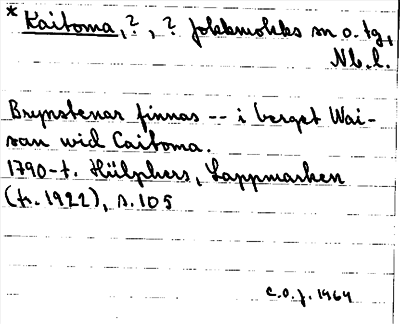 * Kaitoma, ?, ? Jokkmokks sn o. tg,
Nb.l.
Brynstenar finnas -- i berget Wai-
san wid Caitoma.
1790-t. Hülphers, Lappmarken
(tr. 1922), s. 105
C.O.J. 1964